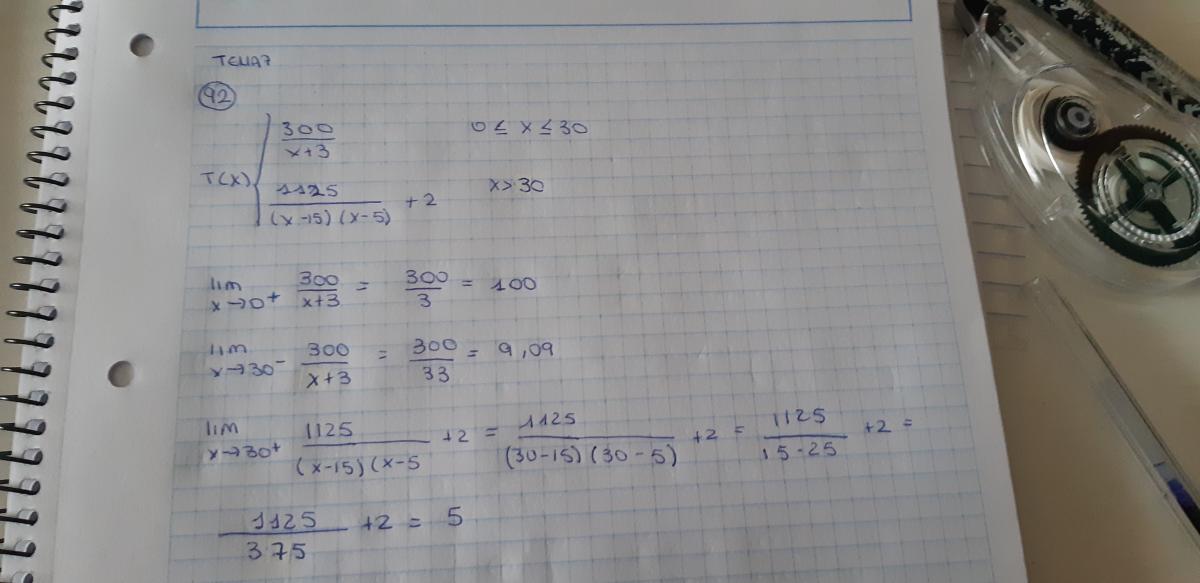 TEMA7
92
T(X) { 300/(x+3)    0 ≤ x ≤ 30
1125/((x-15)(x-5)) + 2    x > 30
lim x→0+ 300/(x+3) = 300/3 = 100
lim x→30- 300/(x+3) = 300/33 = 9,09
lim x→30+ 1125/((x-15)(x-5) +2 = 1125/((30-15)(30-5)) +2 = 1125/(15·25) +2 =
1125/375 +2 = 5